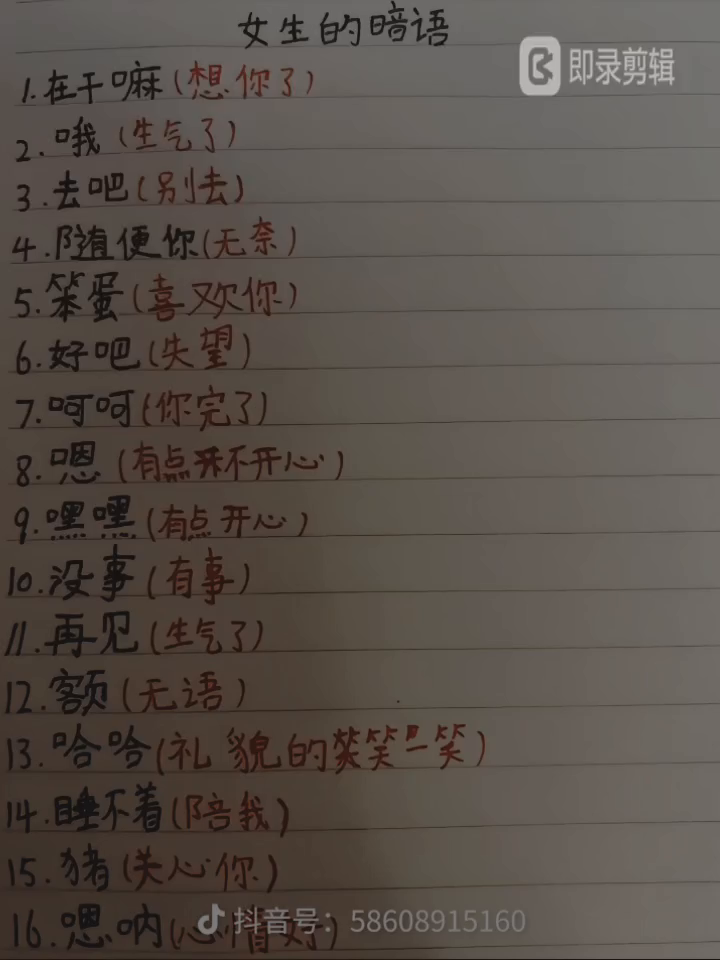 女生的暗语
即录剪辑
1.在干嘛(想你了)
2.哦(生气了)
3.去吧(别去)
4.随便你(无奈)
5.笨蛋(喜欢你)
6.好吧(失望)
7.呵呵(你完了)
8.嗯(有点不开心)
9.嘿嘿(有点开心)
10.没事(有事)
11.再见(生气了)
12.额(无语)
13.哈哈(礼貌的笑一笑)
14.睡不着(陪我)
15.猪(关心你)
16.嗯呐(心情好)
抖音号：58608915160